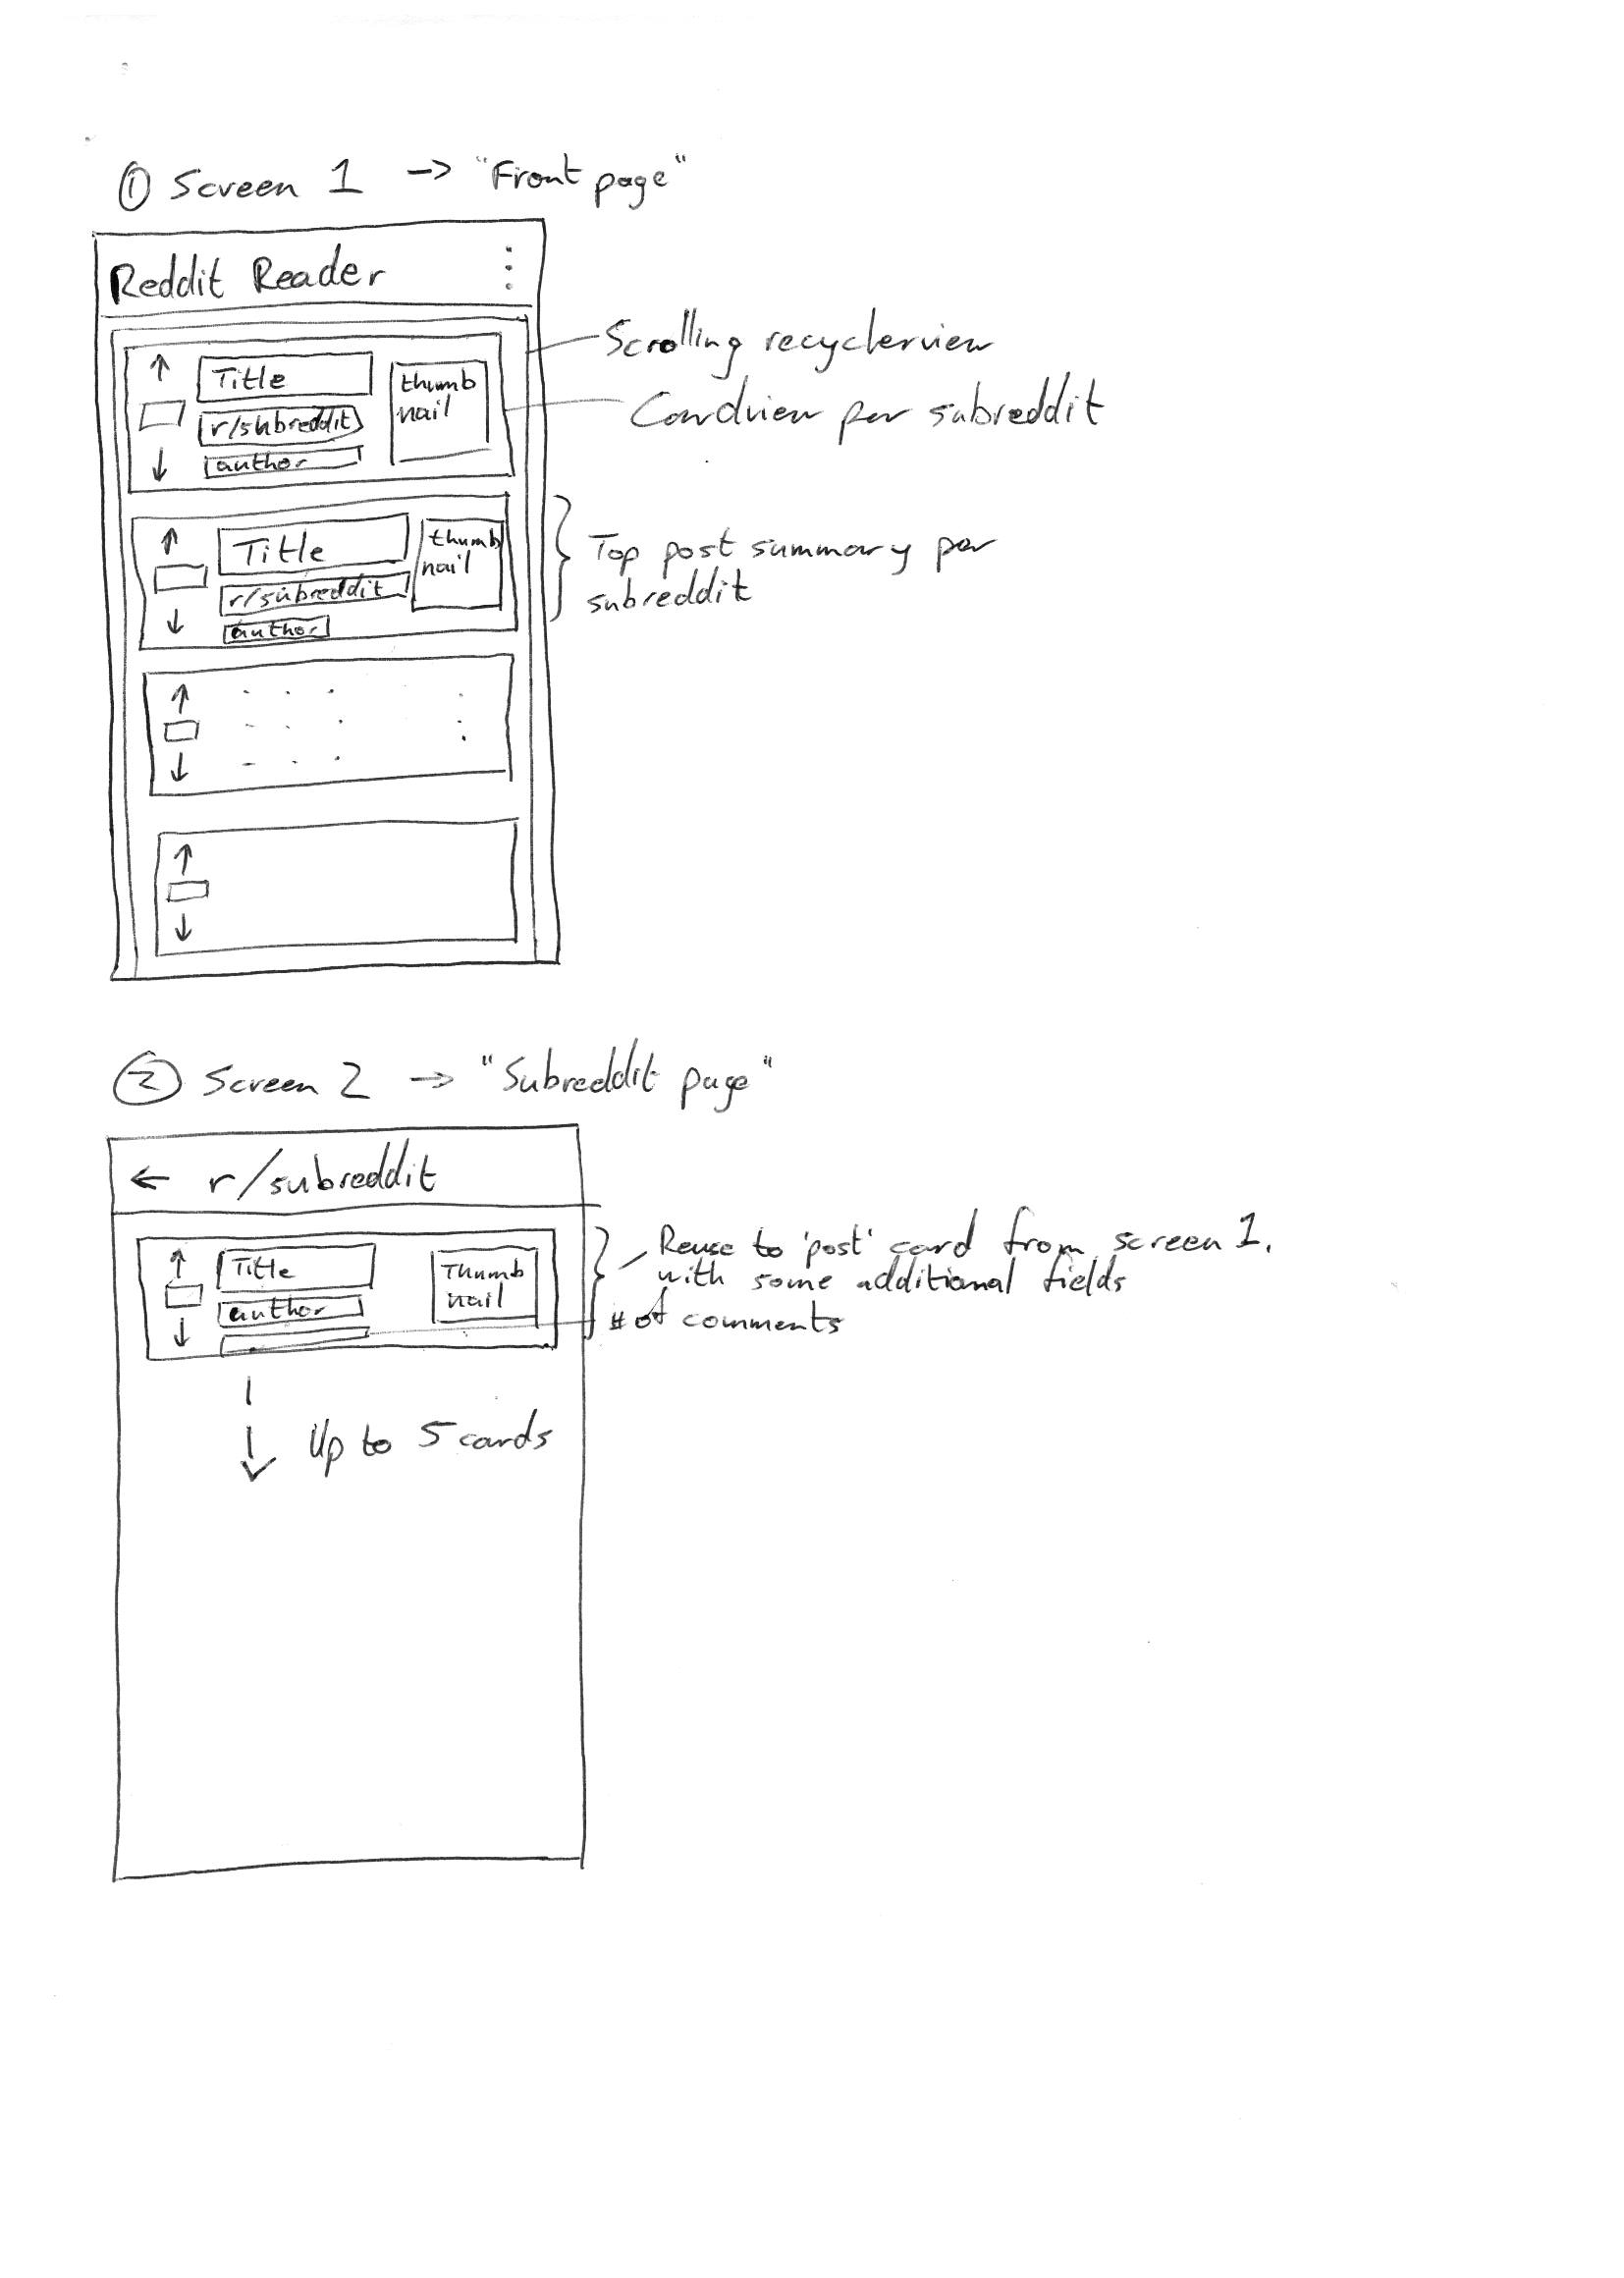 ① Screen 1 -> "Front page"
Reddit Reader
Title
r/subreddit
author
thumb
nail
Scrolling recyclerview
Cardview per subreddit
Title
r/subreddit
author
thumb
nail
Top post summary per
subreddit
② Screen 2 -> "Subreddit page"
← r/subreddit
Title
author
Thumb
nail
Reuse to 'post' card from screen 1.
with some additional fields
# of comments
Up to 5 cards